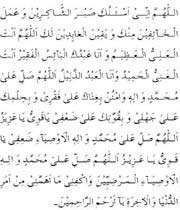 اَللّٰهُمَّ اِنِّیْ اَسْئَلُكَ صَبْرَ الشَّاكِرِيْنَ وَ عَمَلَ
الْخَائِفِيْنَ مِنْكَ وَ يَقِيْنَ الْعَابِدِيْنَ لَكَ اَللّٰهُمَّ اَنْتَ
الْعَلِیُّ الْعَظِيْمُ وَ اَنَا عَبْدُكَ الْبَائِسُ الْفَقِيْرُ اَنْتَ
الْغَنِیُّ الْحَمِيْدُ وَ اَنَا الْعَبْدُ الذَّلِيْلُ اَللّٰهُمَّ صَلِّ عَلٰی
مُحَمَّدٍ وَ اٰلِهِ وَ امْنُنْ بِغِنَاكَ عَلٰی فَقْرِیْ وَ بِحِلْمِكَ
عَلٰی جَهْلِیْ وَ بِقُوَّتِكَ عَلٰی ضَعْفِیْ يَاقَوِیُّ يَا عَزِيْزُ
اَللّٰهُمَّ صَلِّ عَلٰی مُحَمَّدٍ وَ اٰلِهِ الْاَوْصِيَآءِ ضَعْفِیْ يَا
قَوِیُّ يَا عَزِيْزُ اَللّٰهُمَّ صَلِّ عَلٰی مُحَمَّدٍ وَ اٰلِهِ
الْاَوْصِيَآءِ الْمَرْضِيِّيْنَ وَ اكْفِنِیْ مَا اَهَمَّنِیْ مِنْ اَمْرِ
الدُّنْيَا وَ الْاٰخِرَةِ يَا اَرْحَمَ الرَّاحِمِيْنَ۔